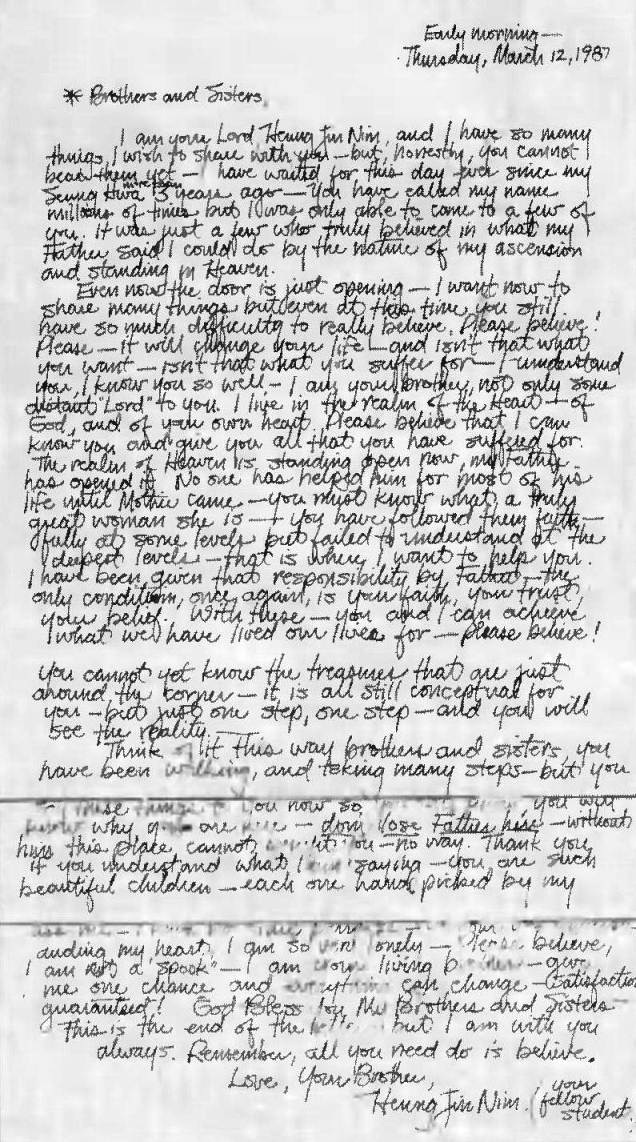 Early morning—
Thursday, March 12, 1987
* Brothers and Sisters,
I am your Lord Heung Jin Nim, and I have so many
things, I wish to share with you—but, honestly, you cannot
bear them yet— I have waited for this day ever since my
Seung Hwa more than 3 years ago—You have called my name
millions of times but I was only able to come to a few of
you. It was just a few who truly believed in what my
Father said I could do by the nature of my ascension
and standing in Heaven.
Even now the door is just opening— I want now to
share many things but even at this time you still
have so much difficulty to really believe. Please believe!
Please—it will change your life—and isn't that what
you want—isn't that what you suffer for—I understand
you, I know you so well— I am your brother, not only some
distant "Lord" to you. I live in the realm of the Heart—of
God, and of your own heart. Please believe that I can
know you and give you all that you have suffered for.
The realm of Heaven is standing open now, my Father
has opened it. No one has helped him for most of his
life until Mother came—you must know what a truly
great woman she is—you have followed them faith-
fully at some levels but failed to understand at the
deepest levels—that is where I want to help you.
I have been given that responsibility by Father—the
only condition, once again, is your faith, your trust,
your belief. With these—you and I can achieve
what we have lived our lives for—please believe!
You cannot yet know the treasures that are just
around the corner—it is all still conceptual for
you—but just one step, one step—and you will
see the reality.
Think of it this way brothers and sisters, you
have been walking, and taking many steps—but you
these things to you now so you will
why are — don't lose Father here—without
him this place cannot —no way. Thank you
if you understand what I saying—you are such
beautiful children—each one hand picked by my
anding my heart, I am so lonely— Please believe,
I am not a "spook"— I am your living brother—give
me one chance and everything can change—Satisfaction
guaranteed! God Bless You My Brothers and Sisters—
This is the end of the letter but I am with you
always. Remember, all you need do is believe.
Love, Your Brother,
Heung Jin Nim. (your
fellow
student.)